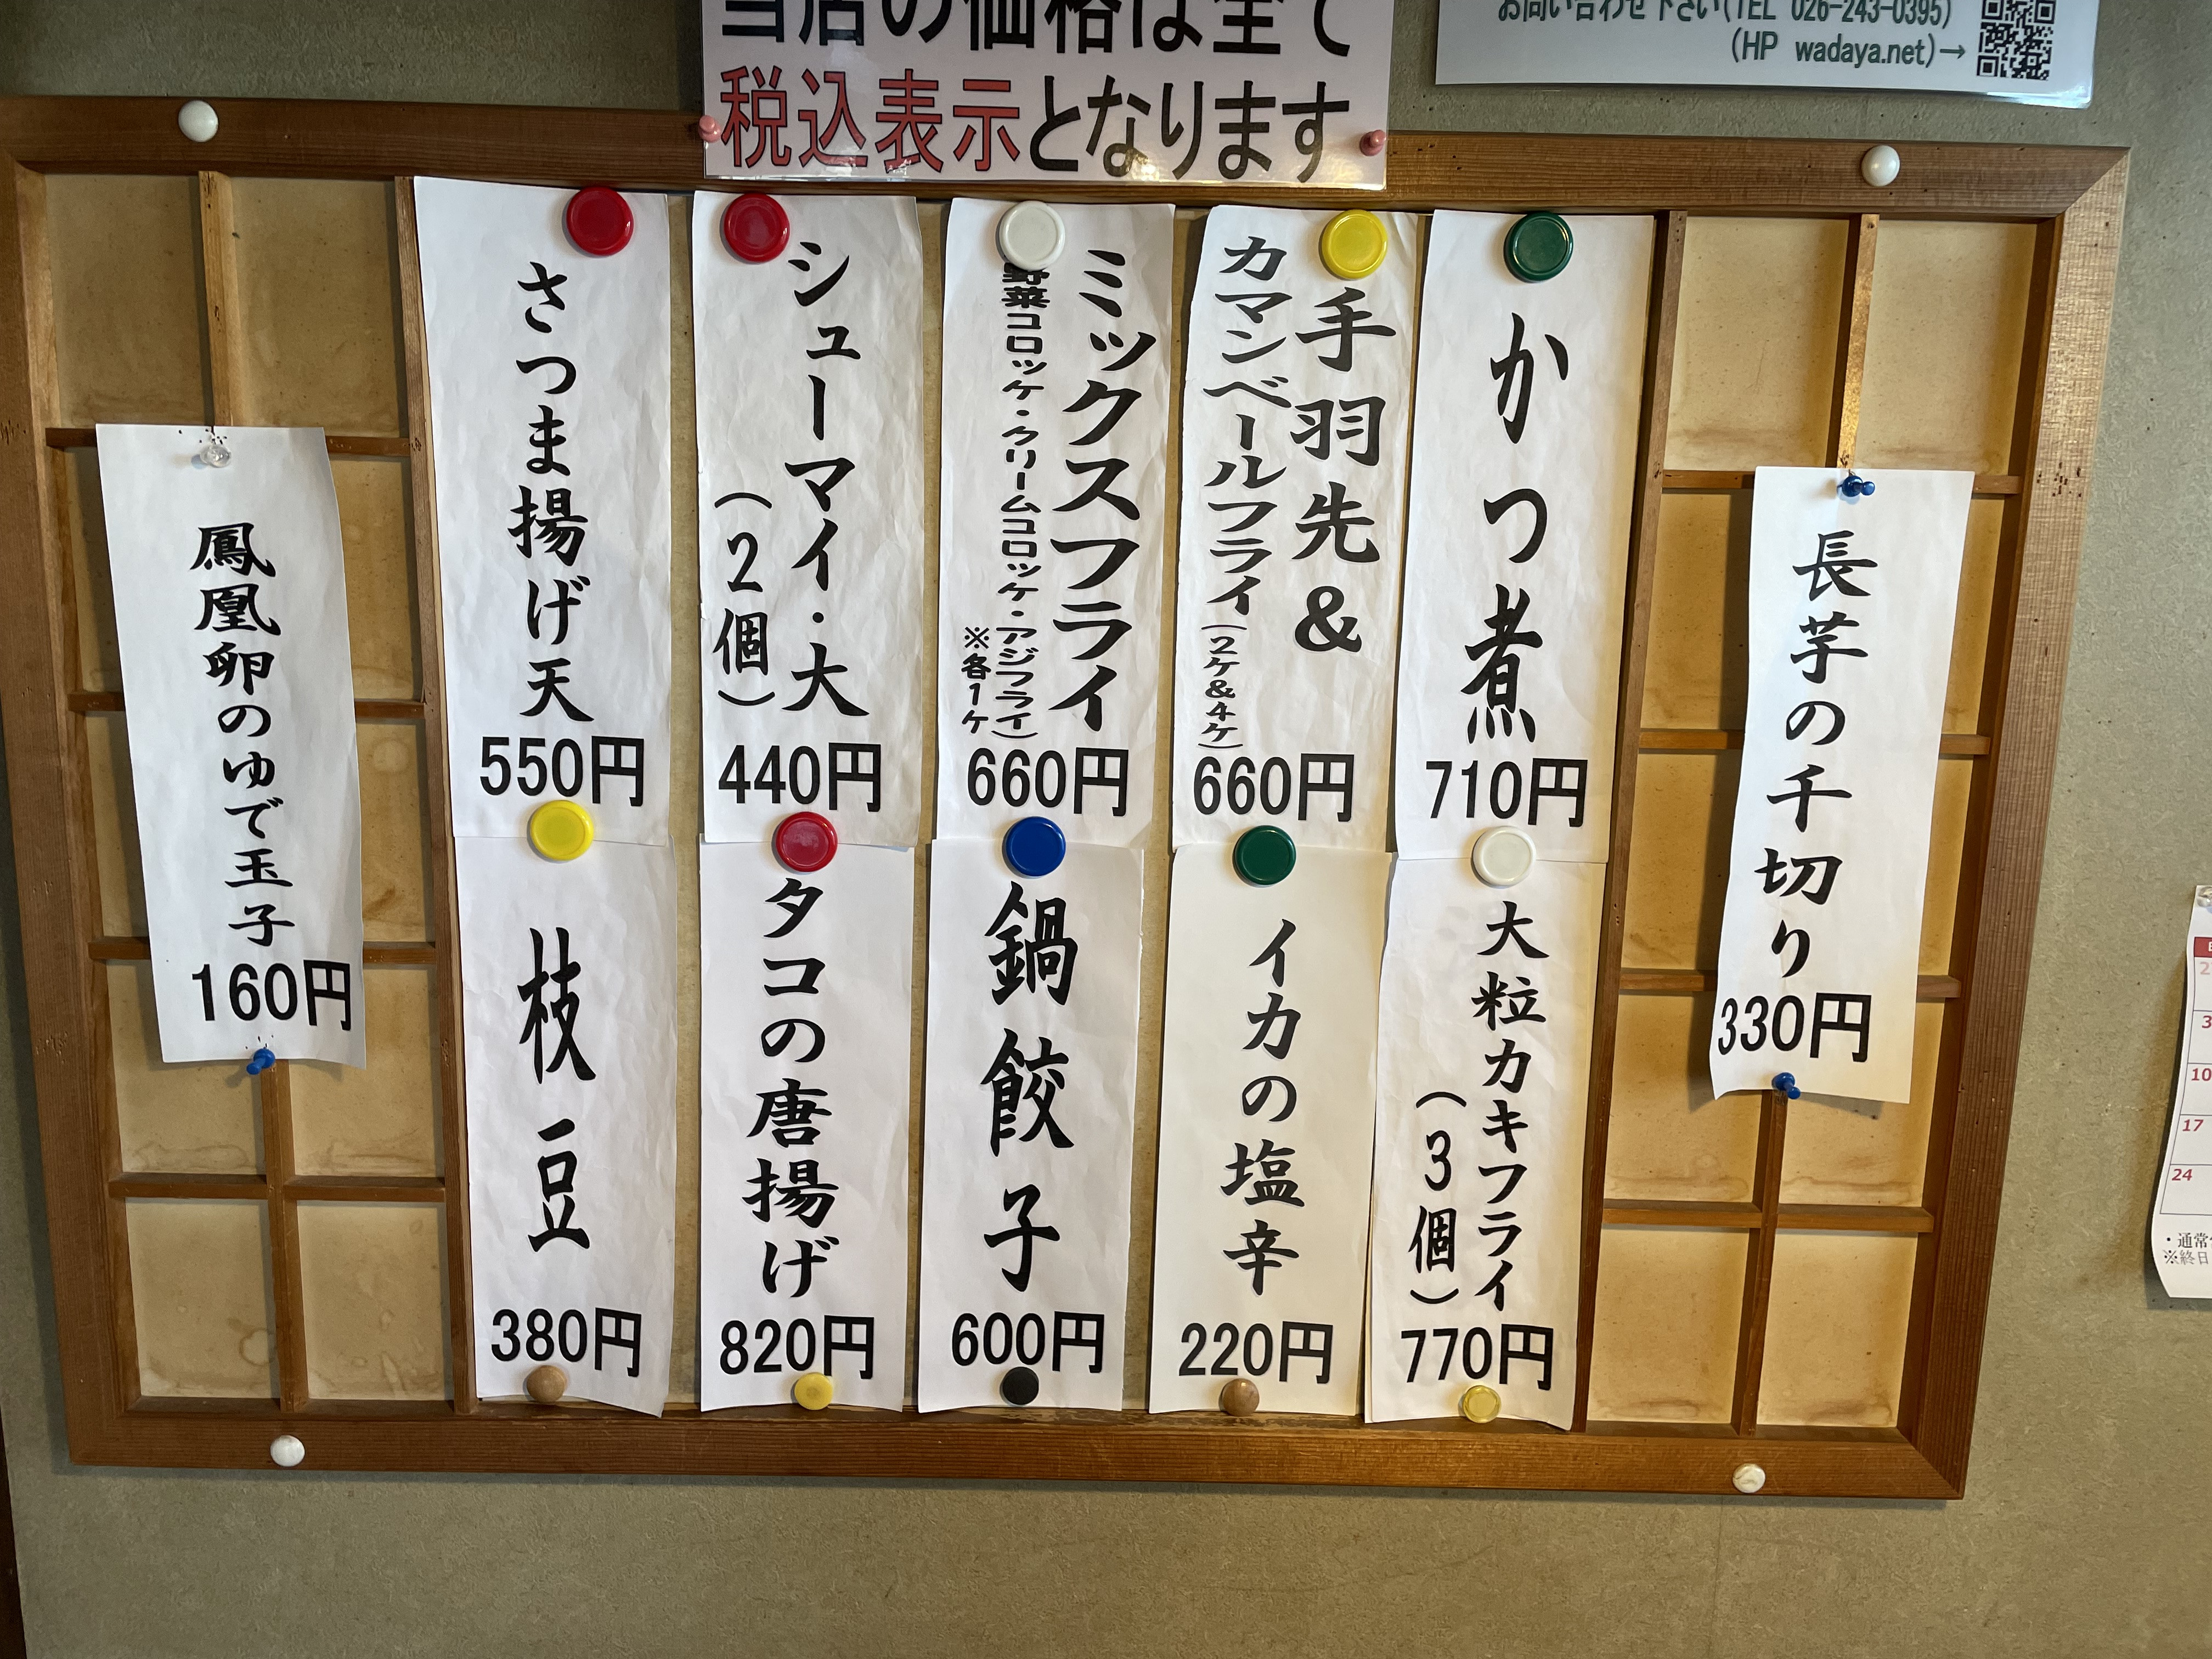 当店の価格は全て
税込表示となります
お問い合わせ下さい(TEL 026-243-0395)
(HP wadaya.net)→
長芋の千切り
330円
かつ煮
710円
手羽先&
カマンベールフライ(2ケ&4ケ)
660円
ミックスフライ
野菜コロッケ・クリームコロッケ・アジフライ)
※各1ケ
660円
シューマイ・大
(2個)
440円
さつま揚げ天
550円
大粒カキフライ
(3個)
770円
イカの塩辛
220円
鍋餃子
600円
タコの唐揚げ
820円
枝豆
380円
鳳凰卵のゆで玉子
160円
10
17
24
・通常
※終日